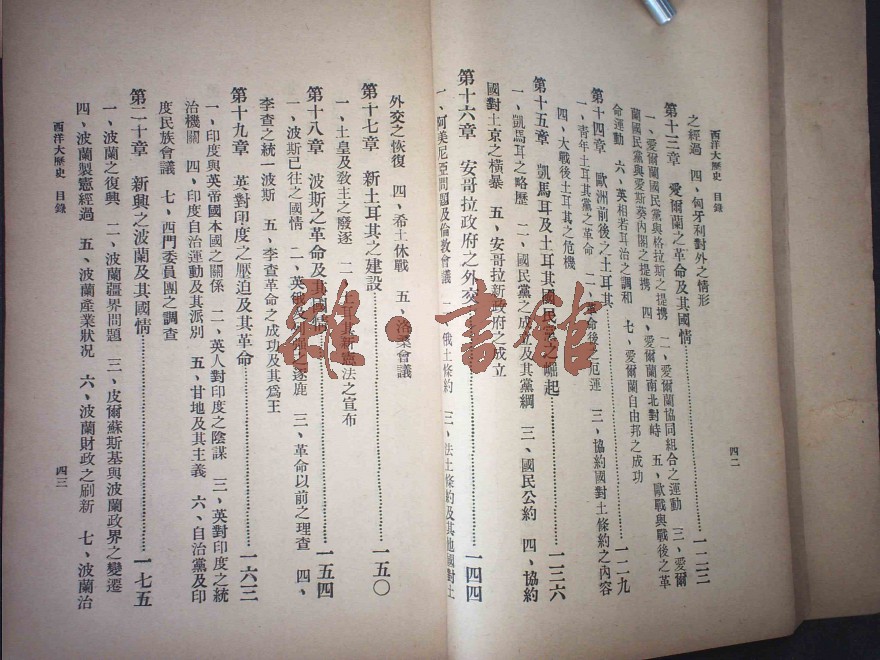 西洋大歷史 目錄
四二
之經過 四、匈牙利對外之情形
第十三章 愛爾蘭之革命及其國情……一二二
一、愛爾蘭國民黨與格拉斯之提携 二、愛爾蘭協同組合之運動 三、愛爾
蘭國民黨與愛斯葵內閣之提携 四、愛爾蘭南北對峙 五、歐戰與戰後之革
命運動 六、英相若耳治之調和 七、愛爾蘭自由邦之成功
第十四章 歐洲前後之土耳其……一二九
一、青年土耳其黨之革命 二、革命後之厄運 三、協約國對土條約之內容
四、大戰後土耳其之危機
第十五章 凱馬耳及土耳其國民黨之崛起……一三六
一、凱馬耳之略歷 二、國民黨之成立及其黨綱 三、國民公約 四、協約
國對土京之橫暴 五、安哥拉新政府之成立
第十六章 安哥拉政府之外交……一四四
一、阿美尼亞問題及倫敦會議 二、俄土條約 三、法土條約及其他國對土
外交之恢復 四、希土休戰 五、洛桑會議
第十七章 新土耳其之建設……一五〇
一、土皇及敎主之廢逐 二、土耳其新憲法之宣布
第十八章 波斯之革命及其國情……一五四
一、波斯已往之國情 二、英俄及列強之逐鹿 三、革命以前之理查 四、
李查之統一波斯 五、李查革命之成功及其爲王
第十九章 英對印度之壓迫及其革命……一六三
一、印度與英帝國本國之關係 二、英人對印度之陰謀 三、英對印度之統
治機關 四、印度自治運動及其派別 五、甘地及其主義 六、自治黨及印
度民族會議 七、西門委員團之調查
第二十章 新興之波蘭及其國情……一七五
一、波蘭之復興 二、波蘭疆界問題 三、皮爾蘇斯基與波蘭政界之變遷
四、波蘭製憲經過 五、波蘭產業狀况 六、波蘭財政之刷新 七、波蘭治
西洋大歷史 目錄
四三
雜·書館